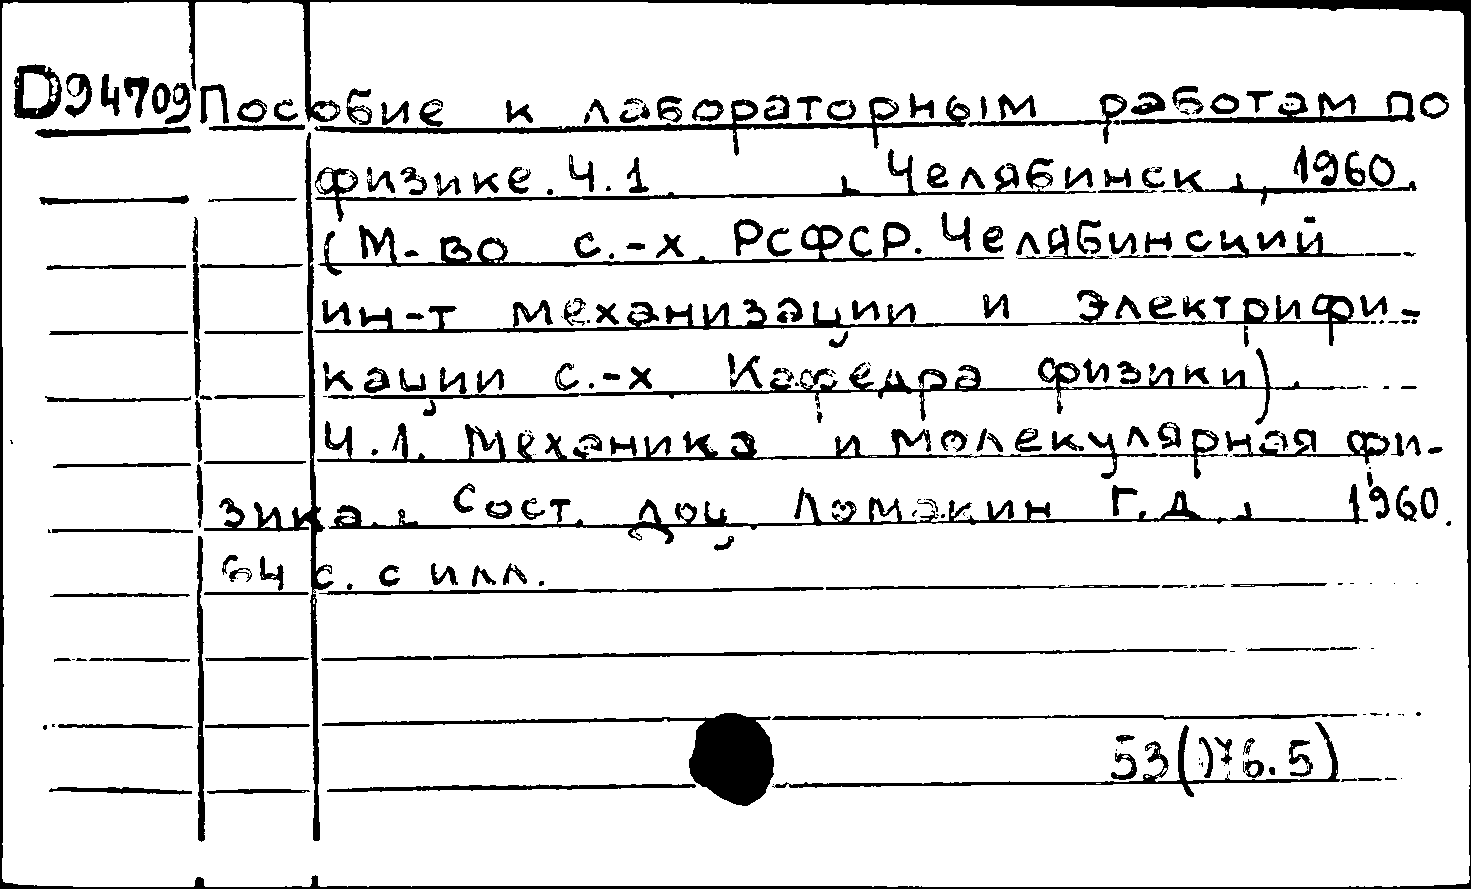 D94709 Пособие к лабораторным работам по
физике. Ч.1. , Челябинск, 1960.
(М-во с.-х. РСФСР. Челябинсций
ин-т механизации и электрифи-
кации с.-х. Кафедра физики).
Ч.1. Механика и молекулярная фи-
зика. Сост. доц. Ломакин Г.Д., 1960.
64 с. с илл.